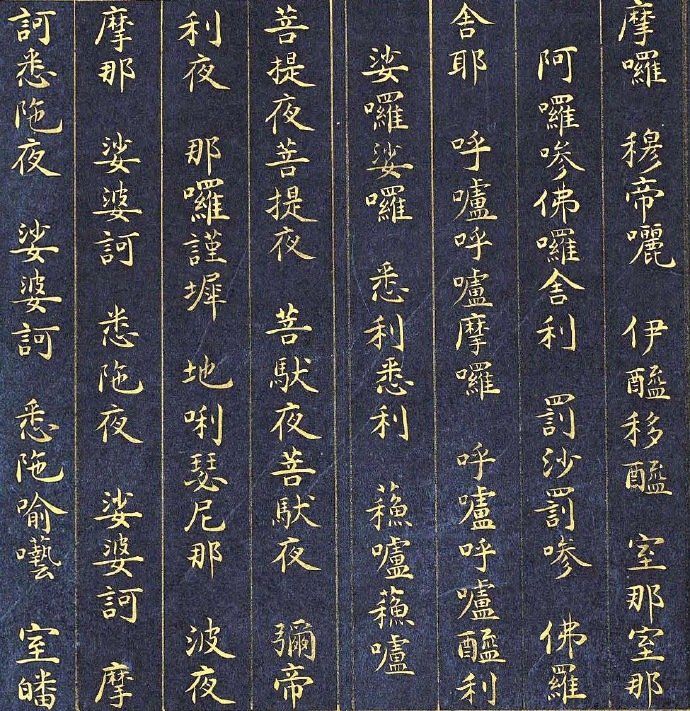 摩囉 穆帝囇 伊醯移醯 室那室那
阿囉嘇佛囉舍利 罰沙罰嘇 佛羅
舍耶 呼嚧呼嚧摩囉 呼嚧呼嚧醯利
娑囉娑囉 悉利悉利 蘓嚧蘓嚧
菩提夜菩提夜 菩馱夜菩馱夜 彌帝
利夜 那囉謹墀 地唎瑟尼那 波夜
摩那 娑婆訶 悉陁夜 娑婆訶 摩
訶悉陁夜 娑婆訶 悉陁喻囈 室皤